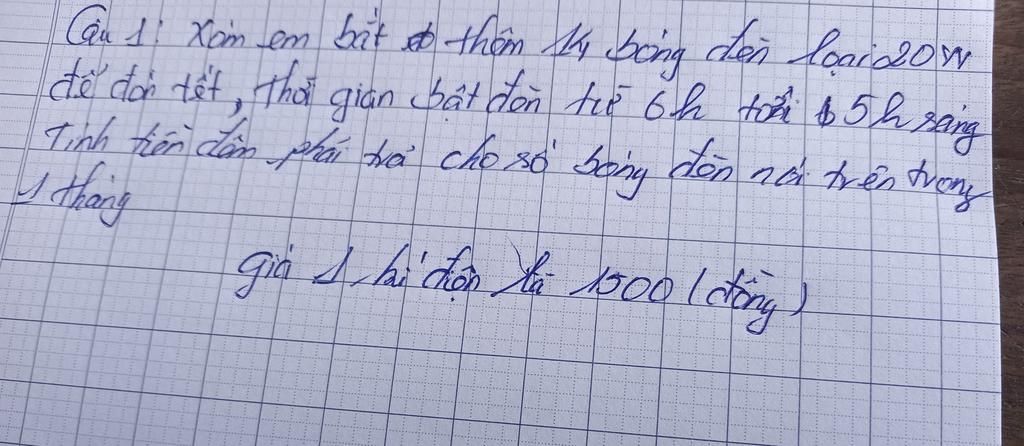 Câu 1: Xóm em bắt thêm 14 bóng đèn loại 20W
để đón tết, thời gian bật đèn từ 6h tối 5h sáng
Tính tiền điện phải trả cho số bóng đèn nói trên trong
1 tháng
giá 1 kí điện là 1500 (đồng)